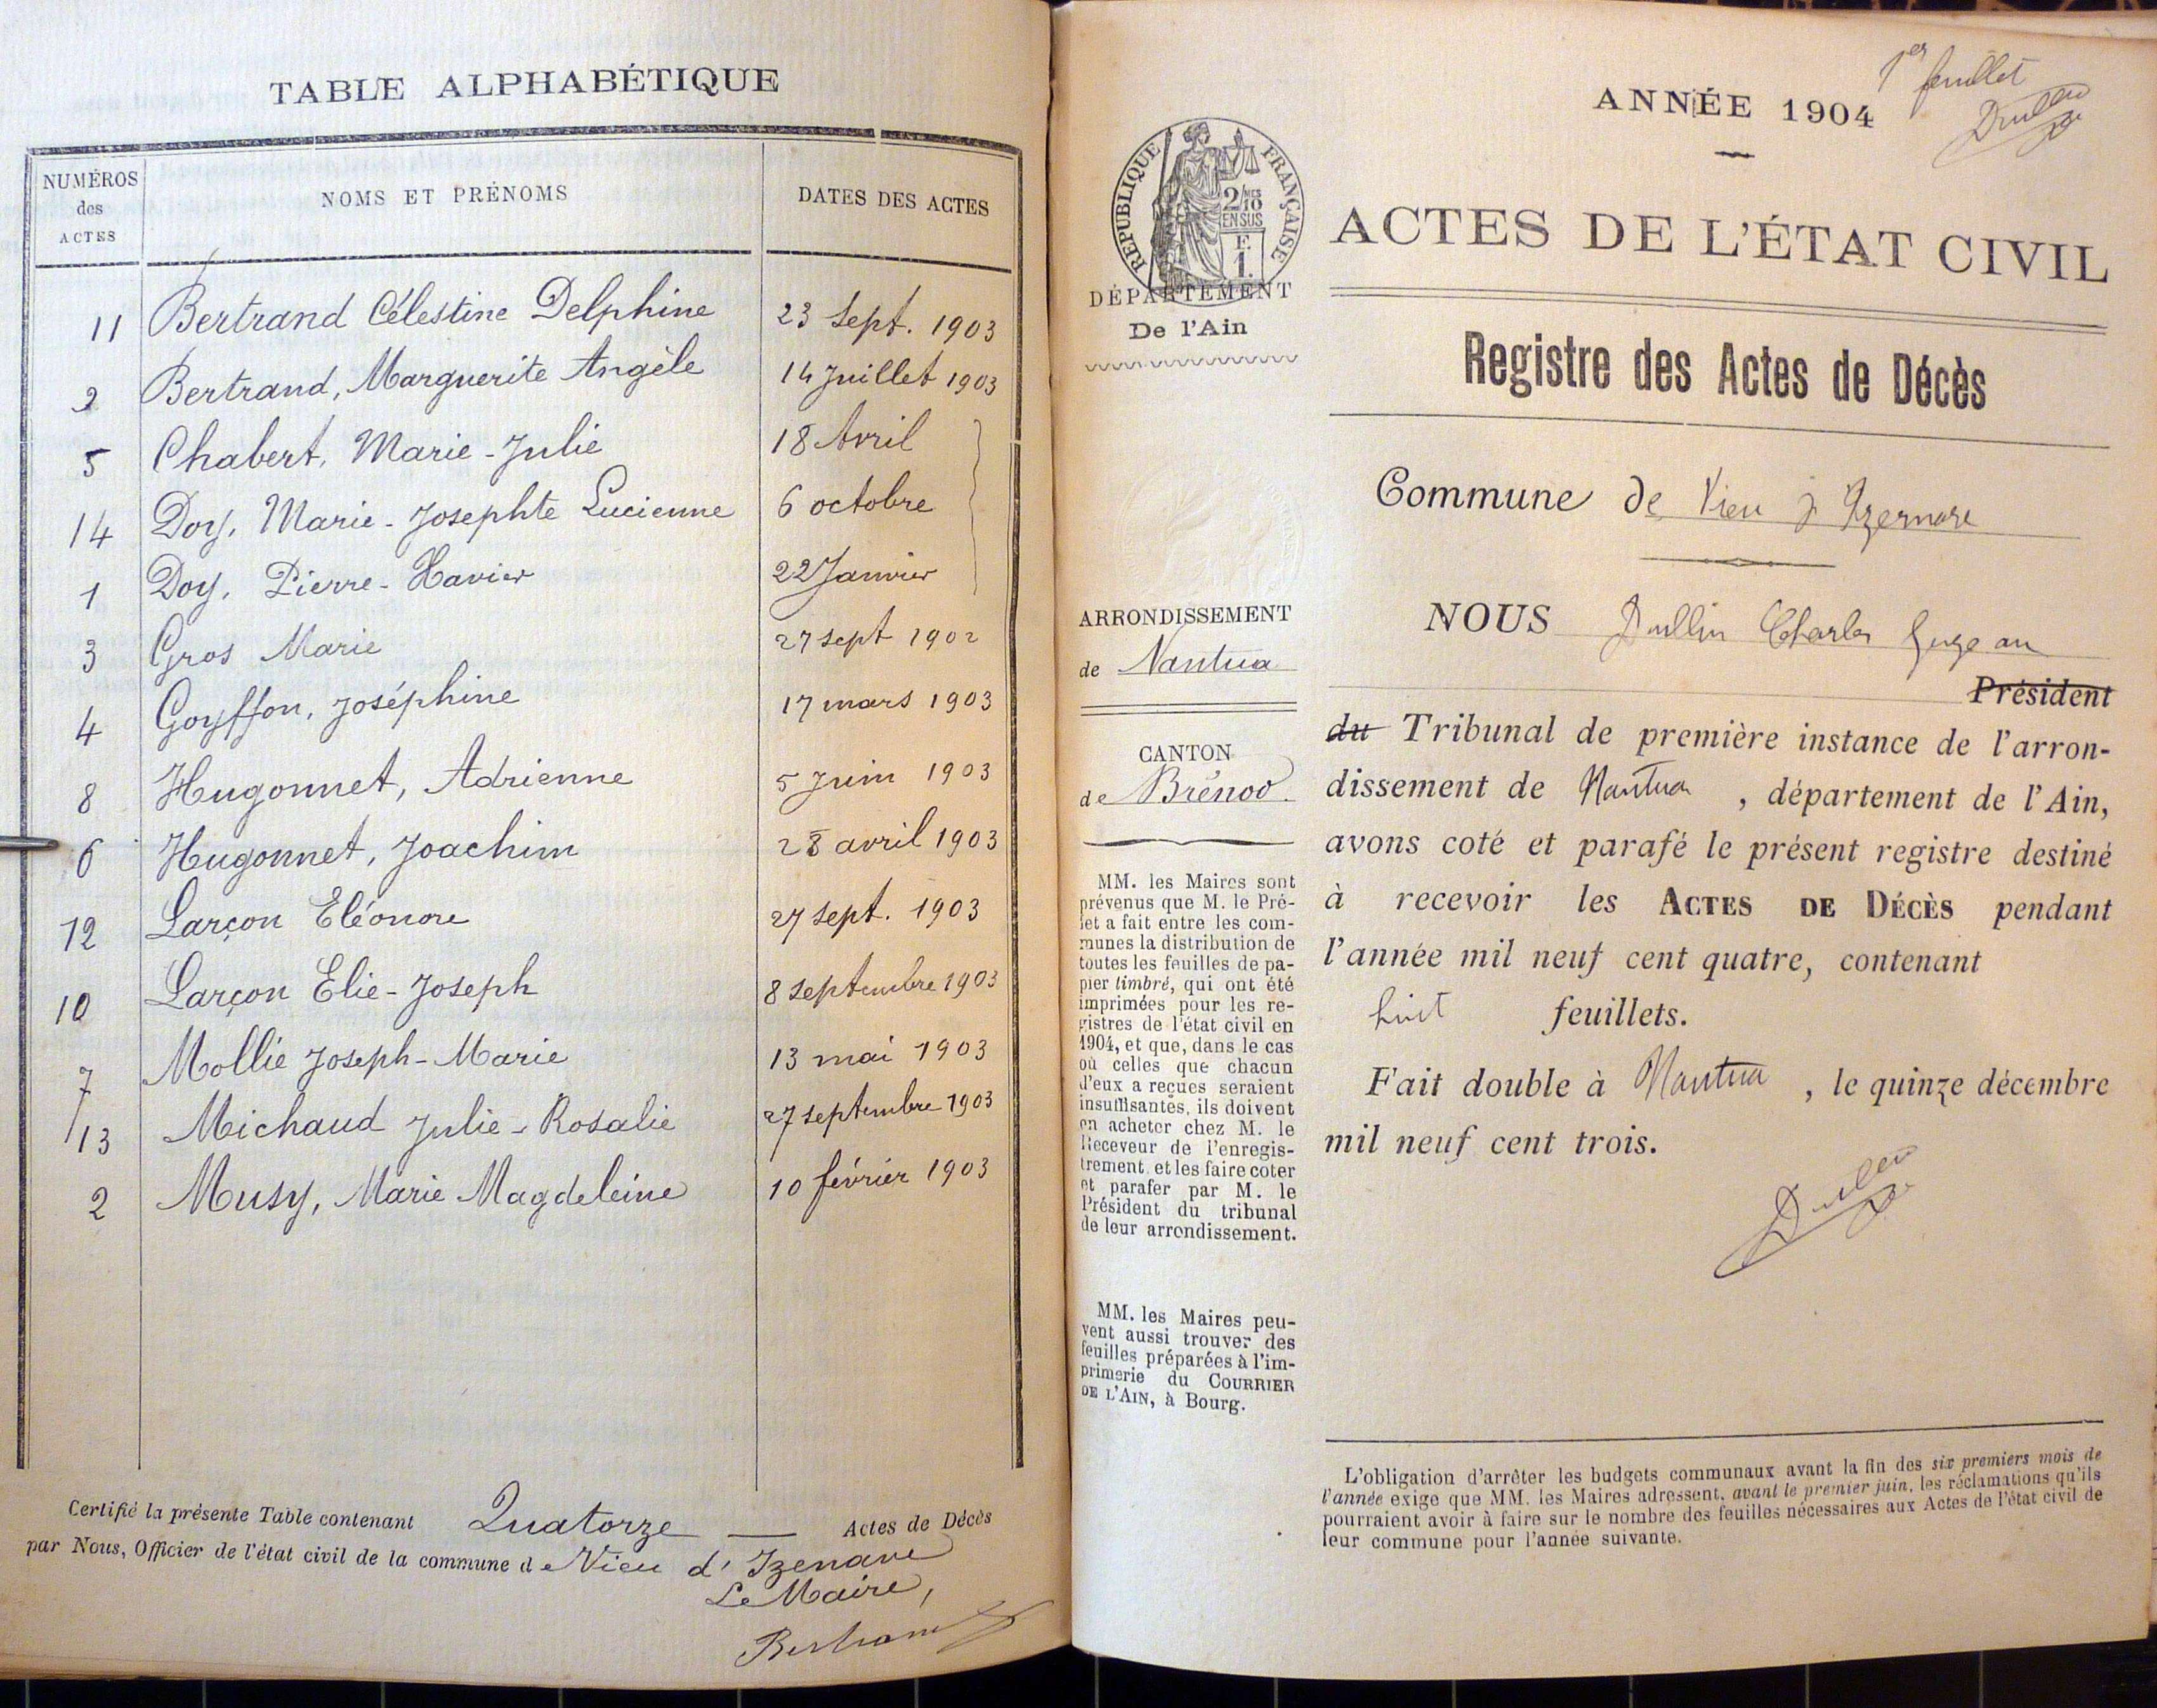 TABLE ALPHABÉTIQUE
NUMÉROS
des
ACTES
NOMS ET PRÉNOMS
DATES DES ACTES
11 Bertrand Célestine Delphine 23 Sept. 1903
9 Bertrand, Marguerite Angèle 14 Juillet 1903
5 Chabert, Marie-Julie 18 Avril
14 Doy, Marie-Josephte Lucienne 6 octobre
1 Doy, Pierre-Xavier 22 Janvier
3 Gros Marie 27 sept 1902
4 Goyffon, Joséphine 17 mars 1903
8 Hugonnet, Adrienne 5 Juin 1903
6 Hugonnet, Joachim 28 avril 1903
12 Larçon Eléonore 27 sept. 1903
10 Larçon Elie-Joseph 8 septembre 1903
7 Mollie Joseph-Marie 13 mai 1903
13 Michaud Julie-Rosalie 27 septembre 1903
2 Musy, Marie Magdeleine 10 février 1903
Certifié la présente Table contenant Quatorze — Actes de Décès
par Nous, Officier de l'état civil de la commune de Vieu d'Izenave
Le Maire,
Bertrand
1er feuillet
Dullin
ANNÉE 1904
RÉPUBLIQUE FRANÇAISE
2/10 MES
EN SUS
F.
1.
DÉPARTEMENT
De l'Ain
ACTES DE L'ÉTAT CIVIL
Registre des Actes de Décès
Commune de Vieu d'Izernore
ARRONDISSEMENT
de Nantua
CANTON
de Brénod.
MM. les Maires sont
prévenus que M. le Pré-
fet a fait entre les com-
munes la distribution de
toutes les feuilles de pa-
pier timbré, qui ont été
imprimées pour les re-
gistres de l'état civil en
1904, et que, dans le cas
où celles que chacun
d'eux a reçues seraient
insuffisantes, ils doivent
en acheter chez M. le
Receveur de l'enregis-
trement et les faire coter
et parafer par M. le
Président du tribunal
de leur arrondissement.
MM. les Maires peu-
vent aussi trouver des
feuilles préparées à l'im-
primerie du COURRIER
DE L'AIN, à Bourg.
NOUS Dullin Charles Juge au
Président
du Tribunal de première instance de l'arron-
dissement de Nantua, département de l'Ain,
avons coté et parafé le présent registre destiné
à recevoir les ACTES DE DÉCÈS pendant
l'année mil neuf cent quatre, contenant
huit feuillets.
Fait double à Nantua, le quinze décembre
mil neuf cent trois.
Dullin
L'obligation d'arrêter les budgets communaux avant la fin des six premiers mois de
l'année exige que MM. les Maires adressent, avant le premier juin, les réclamations qu'ils
pourraient avoir à faire sur le nombre des feuilles nécessaires aux Actes de l'état civil de
leur commune pour l'année suivante.